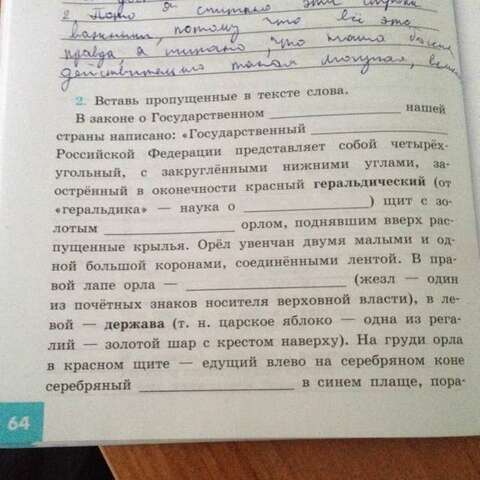 2. я считаю эти
важными, потому что всё это
правда, а
действительно такая могучая,
2. Вставь пропущенные в тексте слова.
В законе о Государственном ____________ нашей
страны написано: «Государственный ____________
Российской Федерации представляет собой четырёх-
угольный, с закруглёнными нижними углами, за-
острённый в оконечности красный геральдический (от
«геральдика» — наука о ____________) щит с зо-
лотым ____________ орлом, поднявшим вверх рас-
пущенные крылья. Орёл увенчан двумя малыми и од-
ной большой коронами, соединёнными лентой. В пра-
вой лапе орла — ____________ (жезл — один
из почётных знаков носителя верховной власти), в ле-
вой — держава (т. н. царское яблоко — одна из рега-
лий — золотой шар с крестом наверху). На груди орла
в красном щите — едущий влево на серебряном коне
серебряный ____________ в синем плаще, пора-
64